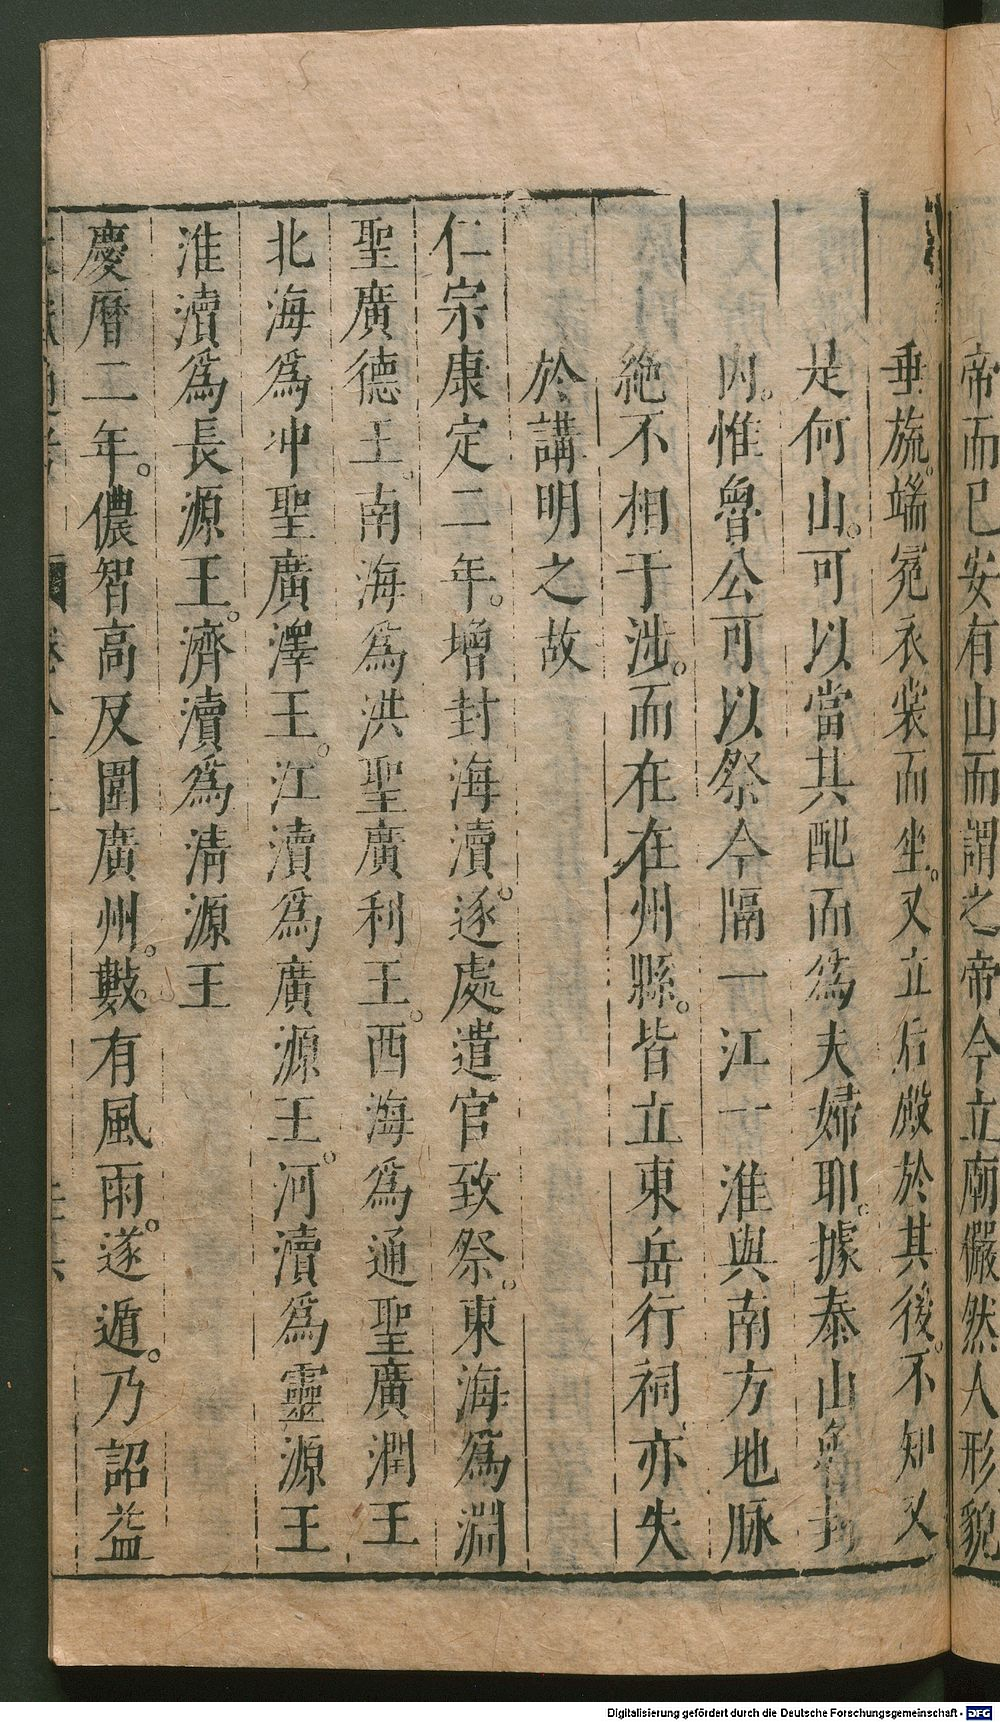 帝而已安有山而謂之帝今立廟儼然人形貌
垂旒端冕衣裳而坐又立后殿於其後不知又
是何山可以當其配而為夫婦耶據泰山魯封
内惟魯公可以祭今隔一江一淮與南方地脉
絶不相干涉而在在州縣皆立東岳行祠亦失
於講明之故
仁宗康定二年增封海瀆遂處遣官致祭東海爲淵
聖廣德王南海爲洪聖廣利王西海爲通聖廣潤王
北海爲冲聖廣澤王江瀆爲廣源王河瀆爲靈源王
淮瀆爲長源王濟瀆爲清源王
慶曆二年儂智高反圍廣州數有風雨遂遁乃詔益
Digitalisierung gefördert durch die Deutsche Forschungsgemeinschaft - DFG